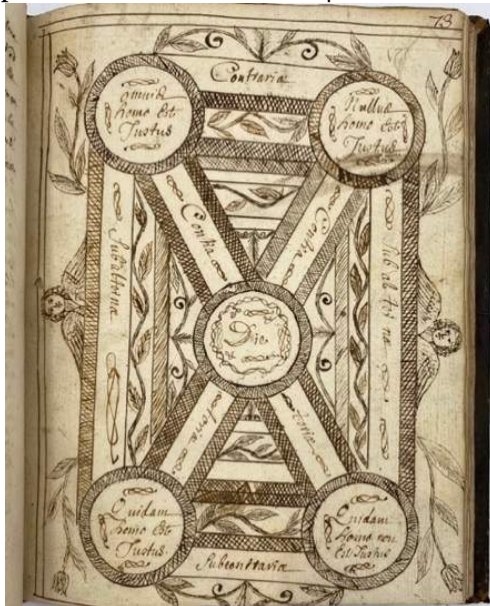 73
Contrariæ
omnis
homo Est
Justus
Nullus
homo Est
Justus
Contra
Contra
Subalternæ
Subalternæ
Dic
toriæ
toriæ
Quidam
homo Est
Justus
Quidam
homo non
Est Justus
Subcontrariæ